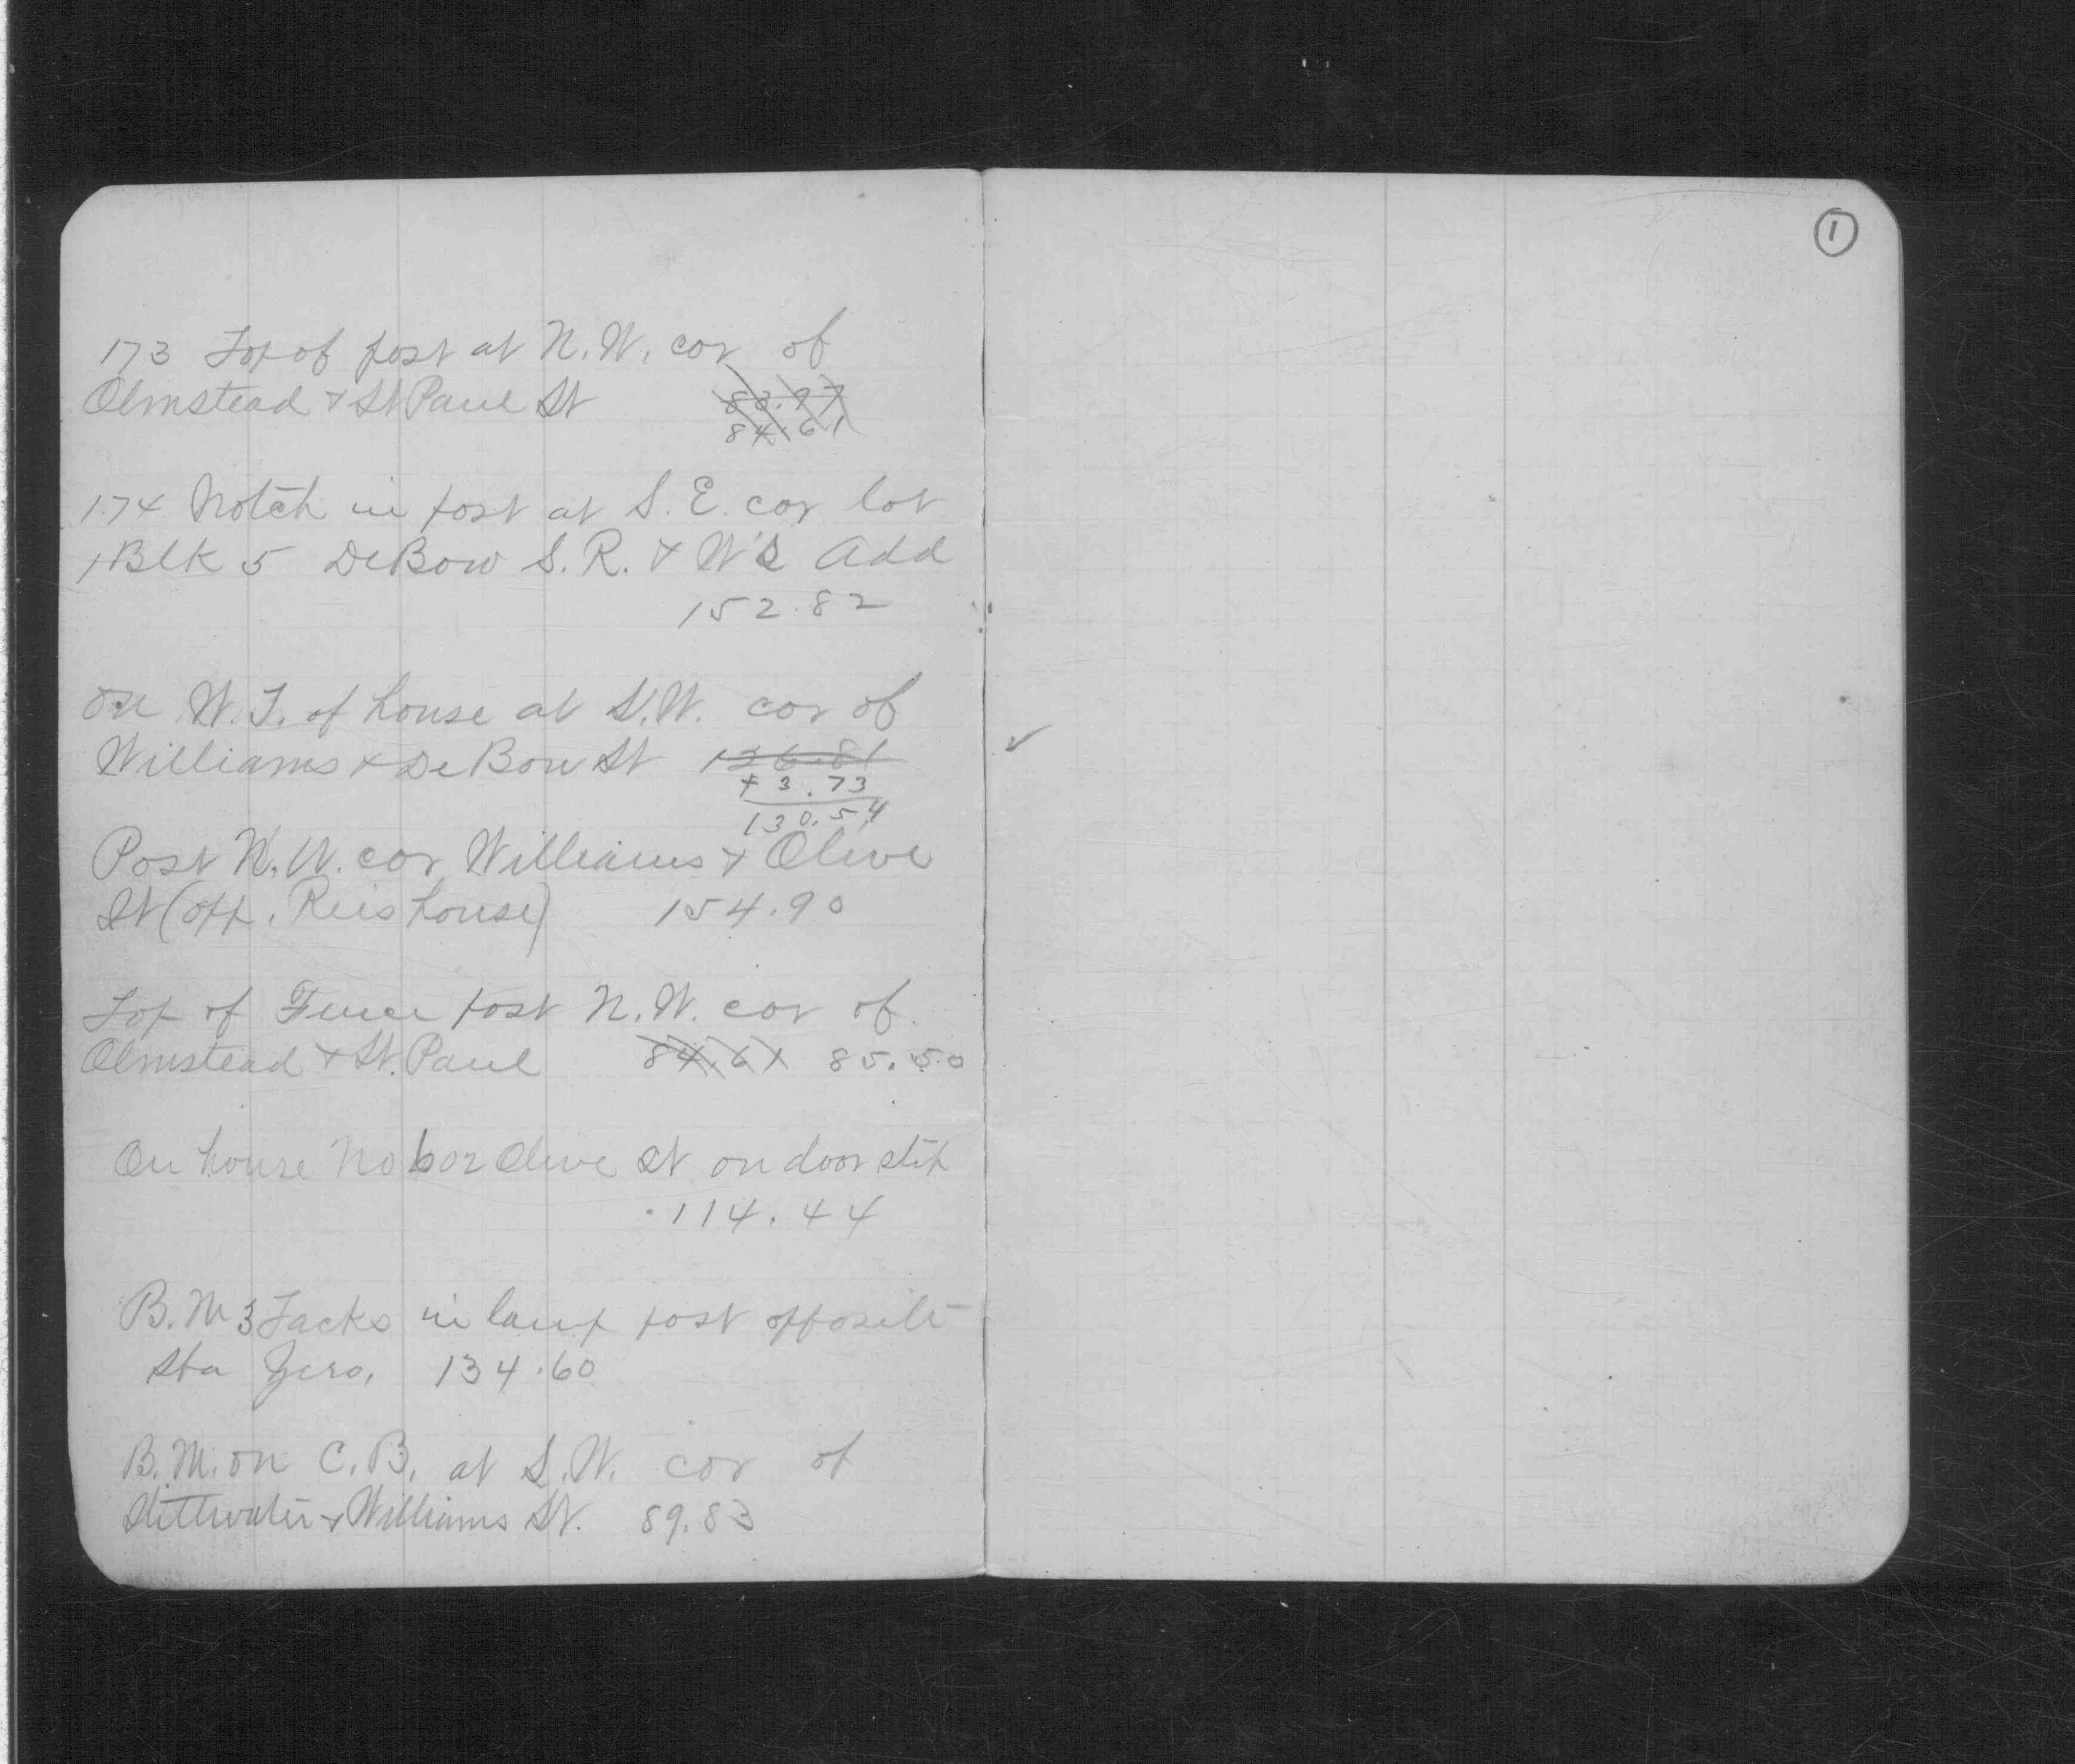 1
173 Top of post at N.W. cor of
Olmstead & St Paul St
84.61
174 Notch in post at S.E. cor lot
1 Blk 5 DeBow S.R. & W's Add
152.82
on W.T. of house at S.W. cor of
Williams & DeBow St 126.81
+ 3.73
130.54
Post N.W. cor Williams & Olive
St (opp. Reis house) 154.90
Top of Fence post N.W. cor of
Olmstead & St. Paul 84.61 85.50
On house No 602 Olive St on door step
114.44
B.M 3 Tacks in lamp post opposite
Sta Zero. 134.60
B.M. on C.B. at S.W. cor of
Stillwater & Williams St. 89.83